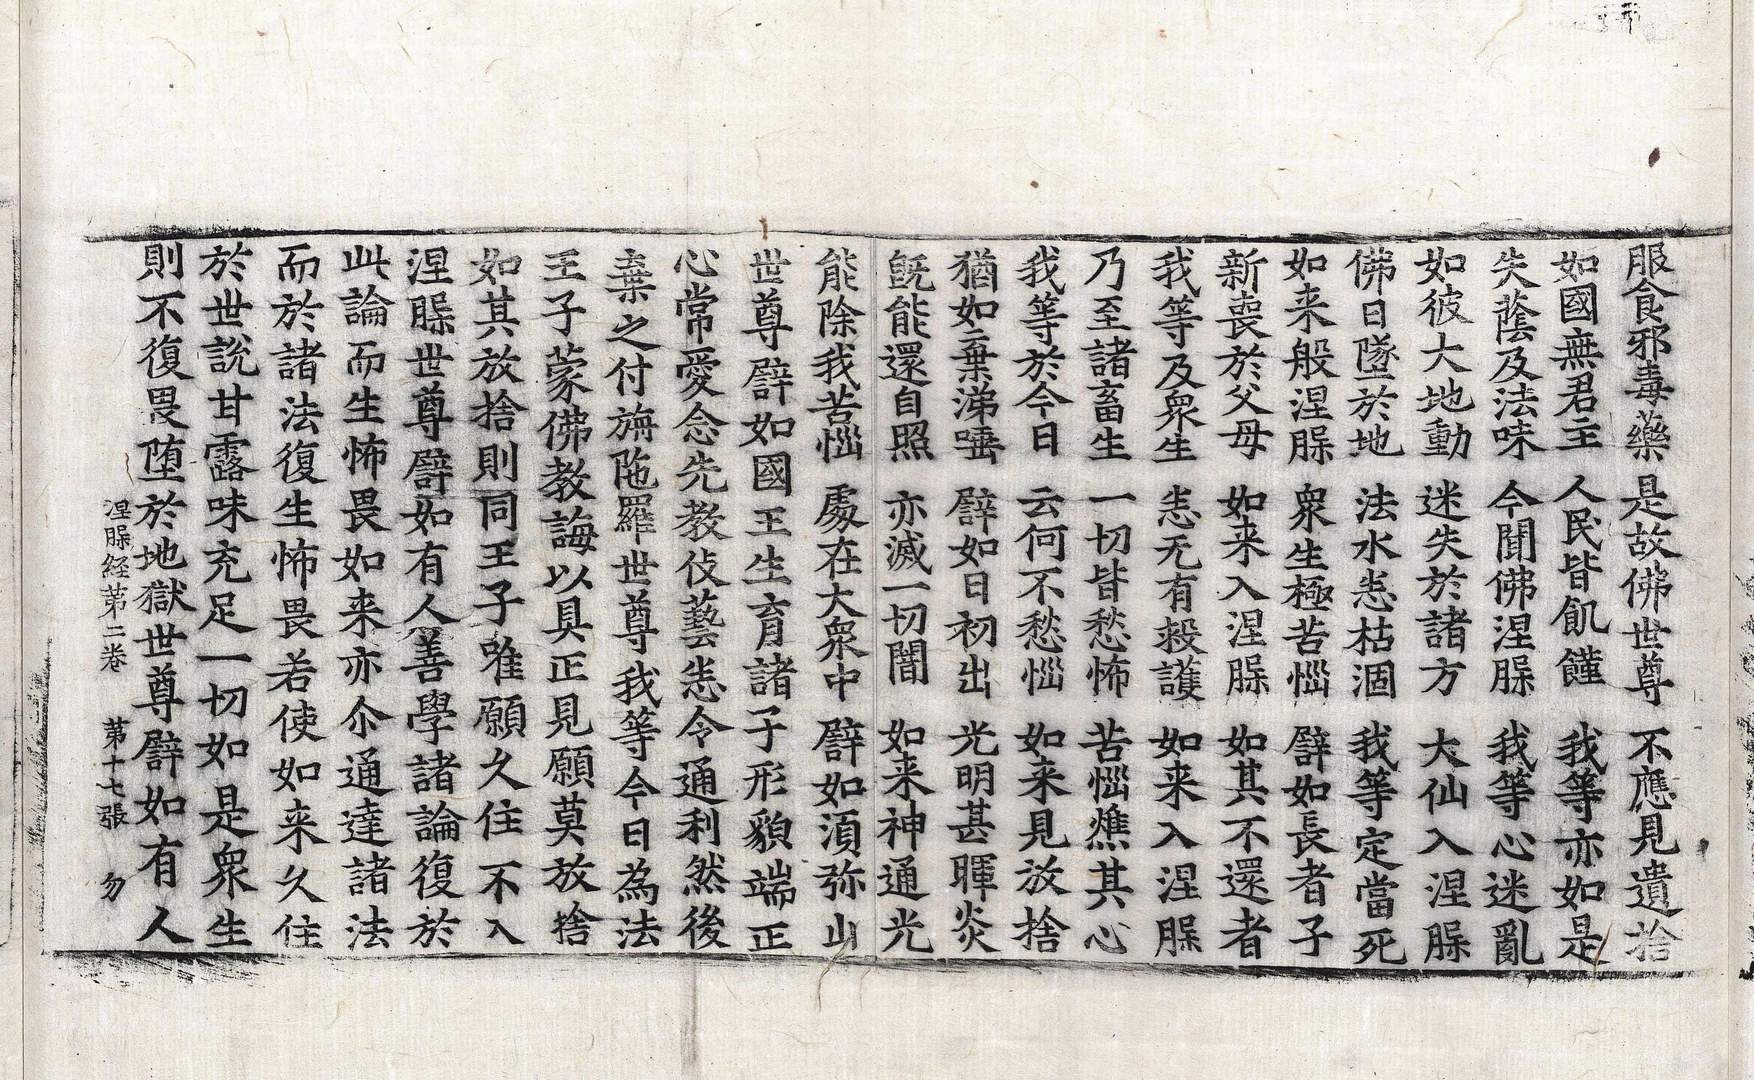 服食邪毒藥 是故佛世尊 不應見遺捨
如國無君主 人民皆飢饉 我等亦如是
失蔭及法味 今聞佛涅膜 我等心迷亂
如彼大地動 迷失於諸方 大仙入涅膜
佛日墜於地 法水悉枯涸 我等定當死
如来般涅膜 衆生極苦惱 譬如長者子
新喪於父母 如来入涅膜 如其不還者
我等及衆生 悉无有救護 如来入涅膜
乃至諸畜生 一切皆愁怖 苦惱燋其心
我等於今日 云何不愁惱 如来見放捨
猶如棄涕唾 譬如日初出 光明甚暉炎
既能還自照 亦滅一切闇 如来神通光
能除我苦惱 處在大衆中 譬如湏弥山
世尊譬如國王生育諸子形貌端正
心常愛念先教伎藝悉令通利然後
棄之付旃陁羅世尊我等今日為法
王子蒙佛教誨以具正見願莫放捨
如其放捨則同王子唯願久住不入
涅膜世尊譬如有人善學諸論復於
此論而生怖畏如来亦尒通達諸法
而於諸法復生怖畏若使如来久住
於世說甘露味充足一切如是衆生
則不復畏堕於地獄世尊譬如有人
涅膜経第二卷 第十七張 勿